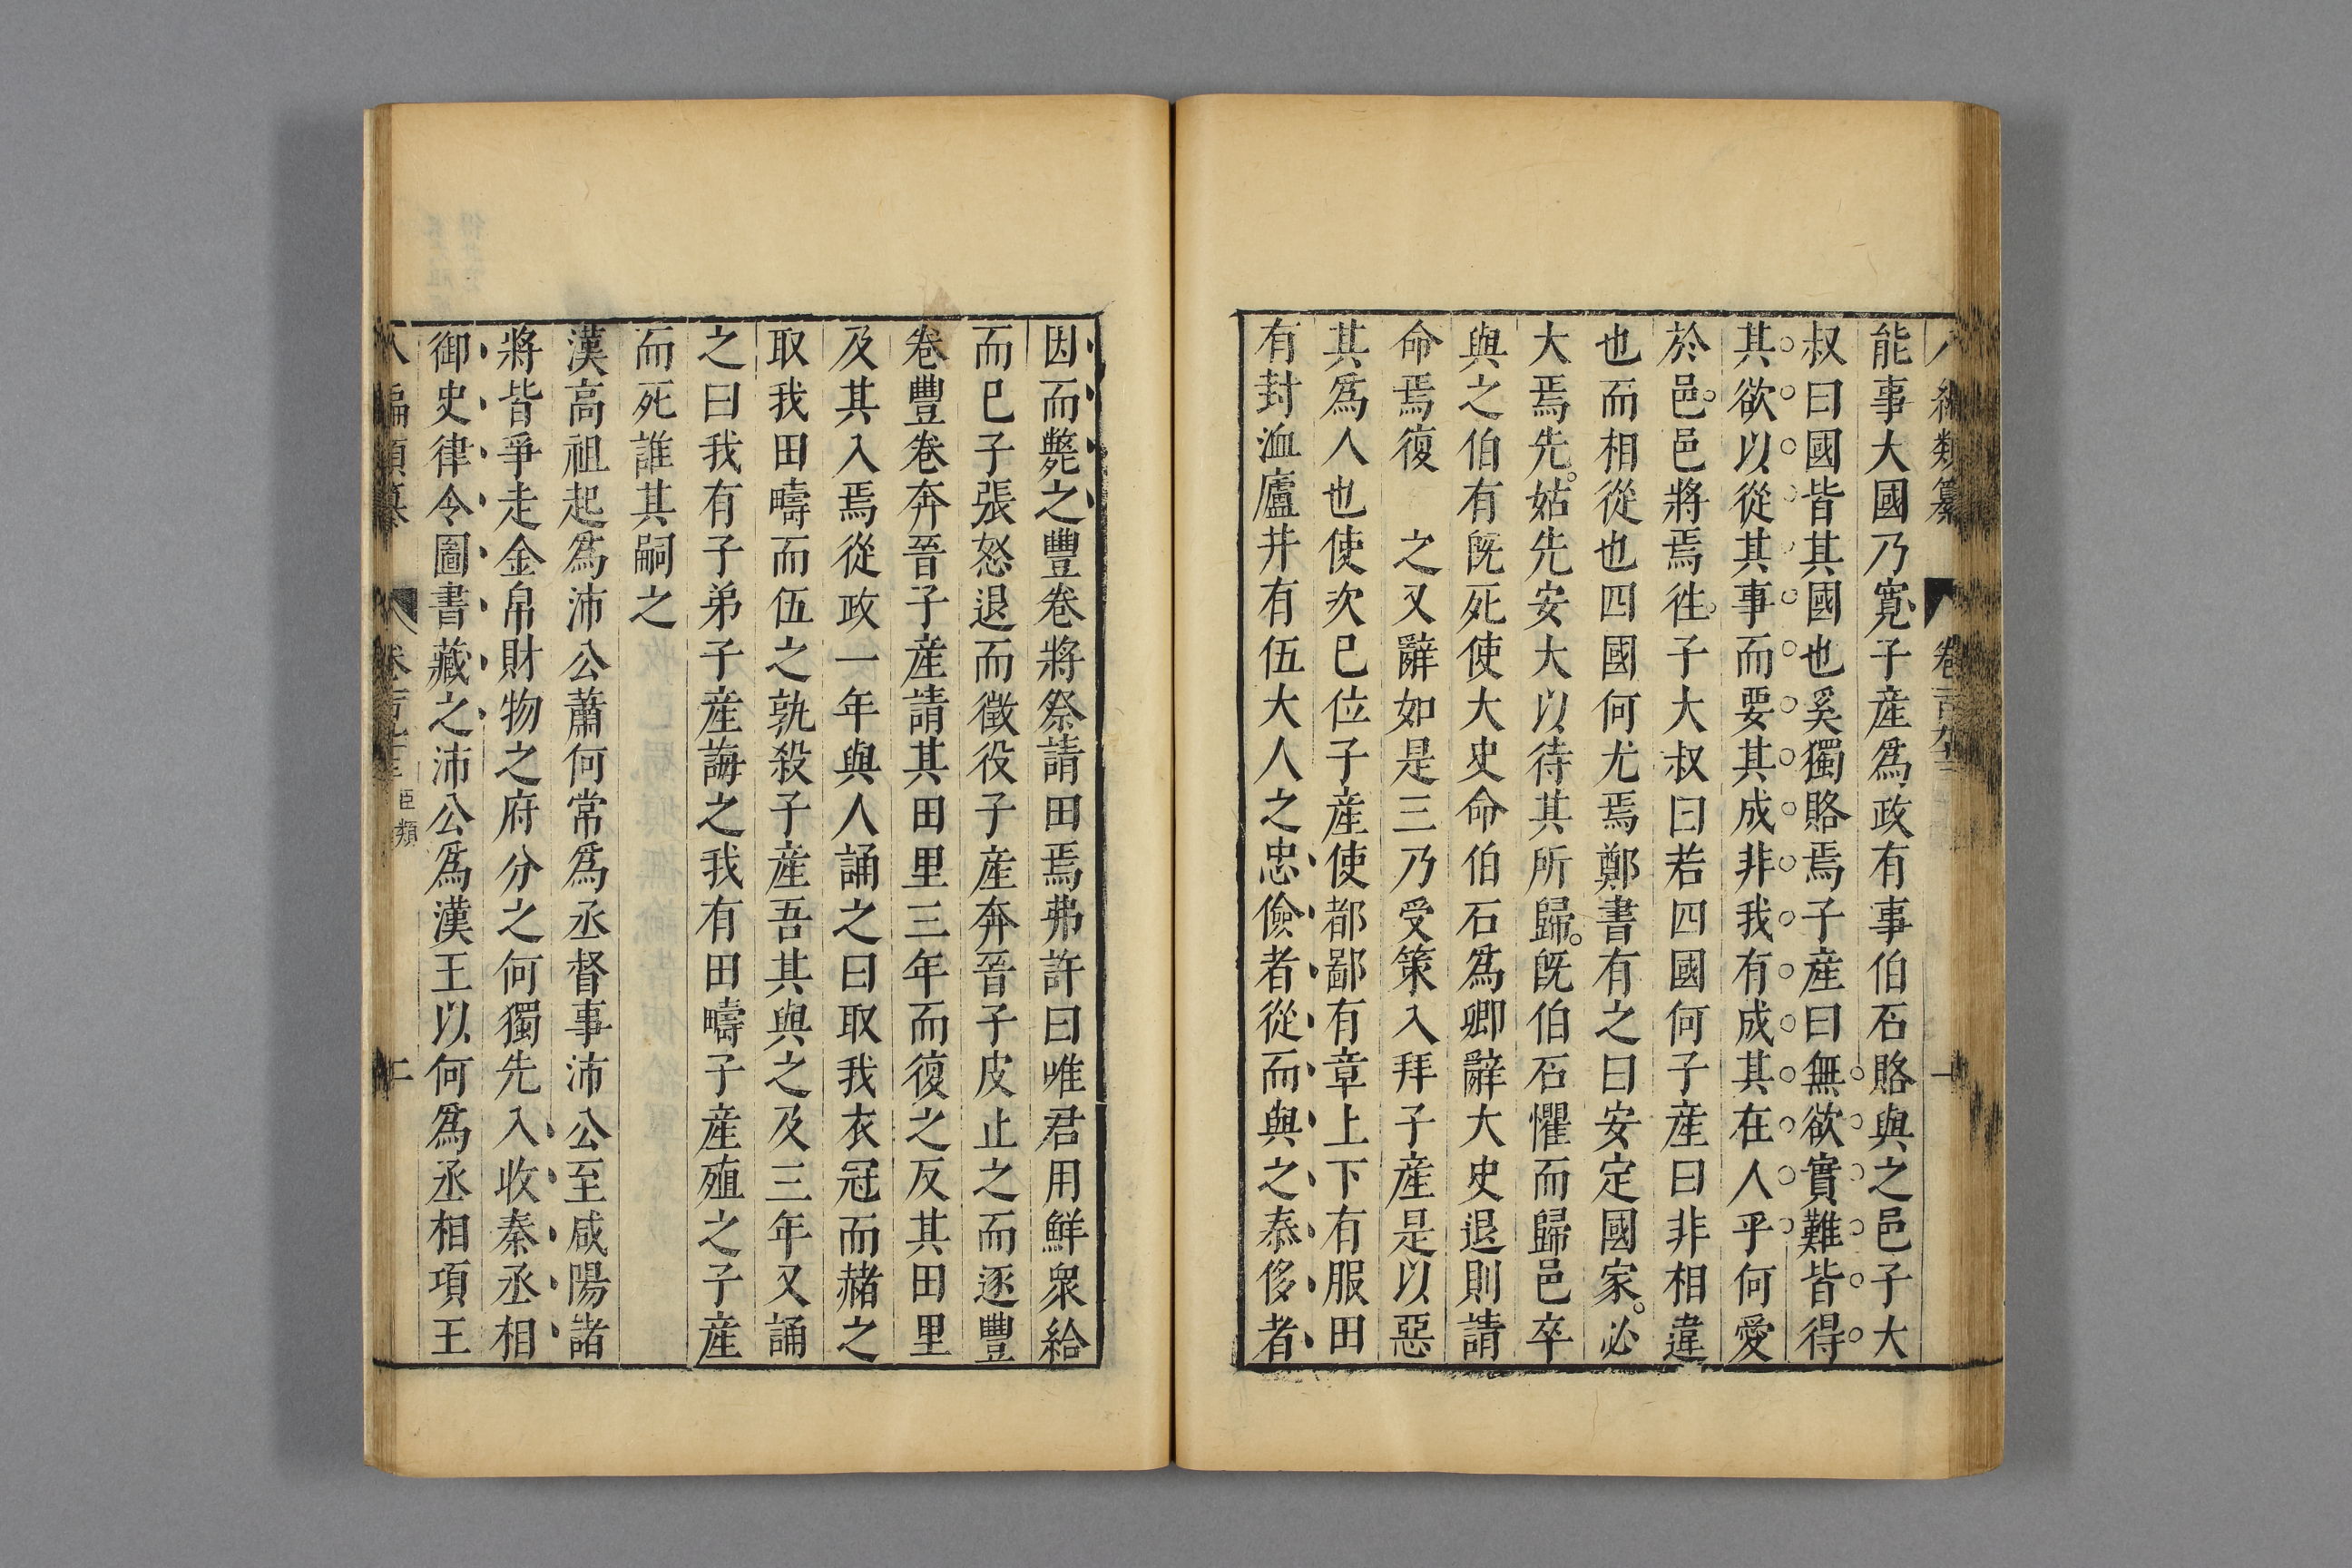 能事大國乃寬子産爲政有事伯石賂與之邑子大
叔曰國皆其國也奚獨賂焉子産曰無欲實難皆得
其欲以從其事而要其成非我有成其在人乎何愛
於邑邑將焉徃子大叔曰若四國何子産曰非相違
也而相從也四國何尤焉鄭書有之曰安定國家必
大焉先姑先安大以待其所歸旣伯石懼而歸邑卒
與之伯有旣死使大史命伯石爲卿辭大史退則請
命焉復 之又辭如是三乃受策入拜子産是以惡
其爲人也使次巳位子産使都鄙有章上下有服田
有封洫廬井有伍大人之忠儉者從而與之泰侈者
因而斃之豐卷將祭請田焉弗許曰唯君用鮮衆給
而巳子張怒退而徵役子產奔晉子皮止之而逐豐
卷豐卷奔晉子産請其田里三年而復之反其田里
及其入焉從政一年與人誦之曰取我衣冠而赭之
取我田疇而伍之孰殺子産吾其與之及三年又誦
之曰我有子弟子産誨之我有田疇子産殖之子産
而死誰其嗣之
漢高祖起爲沛公蕭何常爲丞督事沛公至咸陽諸
將皆爭走金帛財物之府分之何獨先入收秦丞相
御史律令圖書藏之沛公爲漢王以何爲丞相項王
臣類